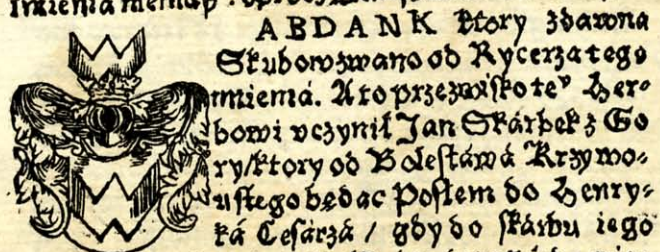 ABDANK ktory zdawna
Skubowzwano od Rycerza tego
imienia. A to przezwisko teº Her⸗
bowi vczynił Jan Skárbek z Go
ry/ktory od Bolesłáwá Krzywo⸗
ustego będąc Posłem do Henry⸗
ká Cesárzá / gdy do skárbu iego